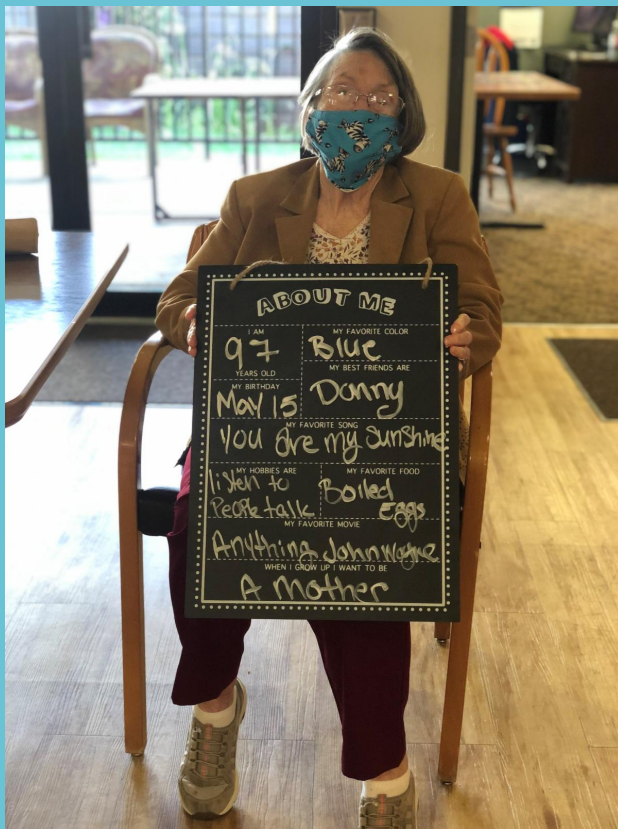 ABOUT ME
I AM
97
YEARS OLD
MY FAVORITE COLOR
Blue
MY BIRTHDAY
May 15
MY BEST FRIENDS ARE
Donny
MY FAVORITE SONG
You are my Sunshine
MY HOBBIES ARE
listen to
People talk
MY FAVORITE FOOD
Boiled
Eggs
MY FAVORITE MOVIE
Anything John Wayne
WHEN I GROW UP I WANT TO BE
A Mother